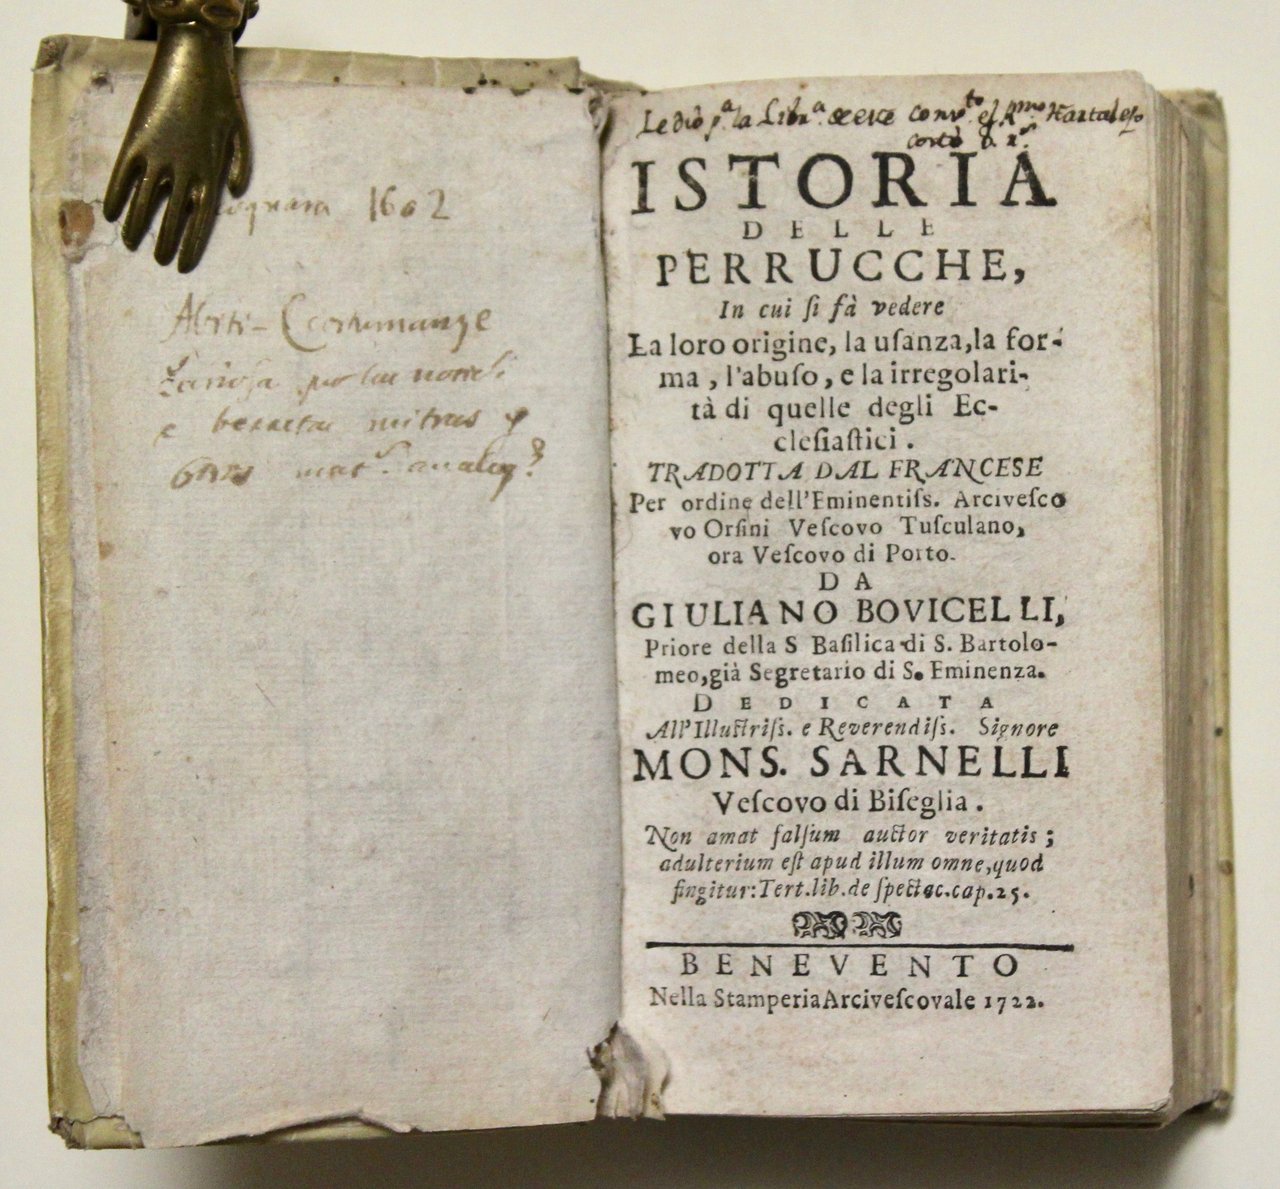 1602
Ledió pª la Librª
ISTORIA
DELLE
PERRUCCHE,
In cui ſi fà vedere
La loro origine, la uſanza, la for-
ma, l'abuſo, e la irregolari-
tà di quelle degli Ec-
cleſiaſtici.
TRADOTTA DAL FRANCESE
Per ordine dell'Eminentiſs. Arciveſco
vo Orſini Veſcovo Tuſculano,
ora Veſcovo di Porto.
DA
GIULIANO BOVICELLI,
Priore della S Baſilica di S. Bartolo-
meo, già Segretario di S. Eminenza.
DEDICATA
All'Illuſtriſs. e Reverendiſs. Signore
MONS. SARNELLI
Veſcovo di Biſeglia.
Non amat falſum auctor veritatis;
adulterium eſt apud illum omne, quod
fingitur: Tert. lib. de ſpectac. cap. 25.
BENEVENTO
Nella Stamperia Arciveſcovale 1722.